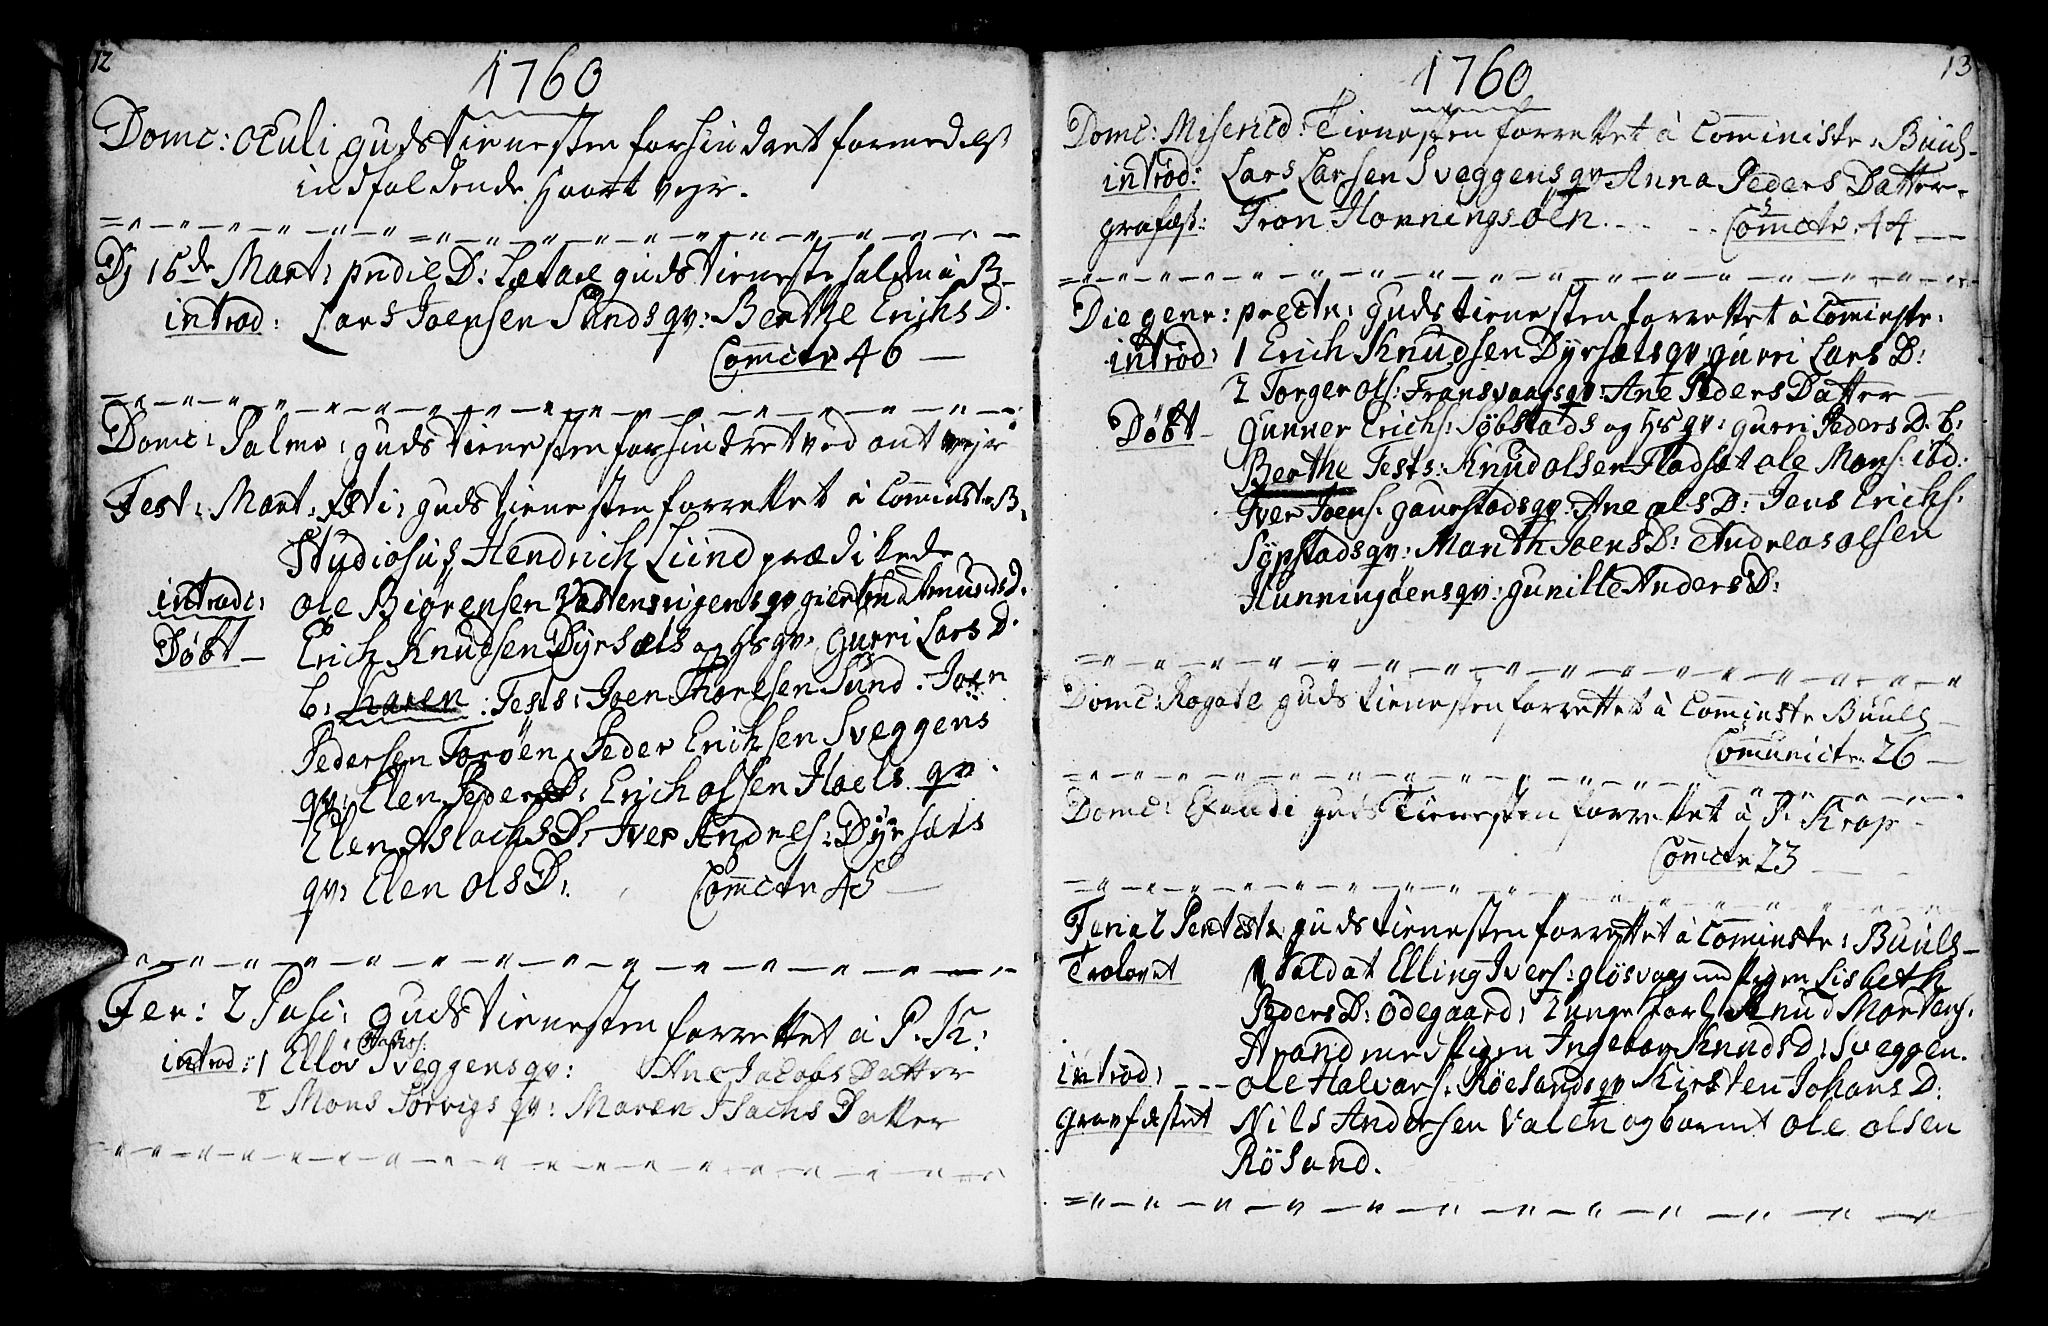 12
1760
Domc: Oculi gudstienesten forhindret formedelst
indfaldende haart vejr.
Dj 16de Mart: pndie D: Lætare gudstieneste holden â B
introd: Lars Joensen Sunds qv: Berthe Erichs D.
Comctr 46
Domc: Palmo: gudstienesten forhindret ved ont vejr
Fest: Mart: gudstienesten forrettet â Cominste B
Studiosus Hendrich Lund prædikede
introdc: Ole Biørensen qv
Døbt Erich Knudsen Dyrsæts og hs qv: Gurri Lars D.
b: Karen: Tests: Joen Thorsen Sund. Joen
Pedersen Torøen, Peder Eriksen Sveggens
qv: Elen Peders D: Erich Olssen Hoels qv.
Elen Aslachs D: Iver Andres: Dyrsæts
qv: Elen Ols D: Comctr 45
Fer: 2 Pasc: gudstienesten forrettet â P. K:
introd: 1 Ellov Sveggens qv: Ane Jacobs Datter
2 Mons Sorvigs qv: Maren Isachs Datter
13
1760
Domc: Misericd: Tienesten forrettet â Cominste: Buuls
introd: Lars Larsen Sveggens qv Anna Peders Datter
grafæst: Tron Horningsøen. Comctr 44
Die gener: prectr: Gudstienesten forrettet â Cominste:
introd: 1 Erich Knudsen Dyrsæts qv: gurri Lars D:
2 Torger Ols: Fransvaags qv: Ane Peders Datter
Døbt Gunner Erichs: Sÿbstads og hs qv: gurri Peders D. b:
Berthe Tests: Knud Olsen Fladsæt Ole Mons: ibd:
Iver Joens. gaustads qv: Ane Ols D: Jens Erichs:
Sÿpstads qv: Marith Joens D: Andreas Olsen
Hunningøens qv: gunille Anders D:
Domc: Rogate gudstienesten forrettet â Cominste Buuls
Comunictr. 26
Domc: Exaudi gudsTienesten forrettet â P. Krap
Comctr 23
Feria 2 Pentcste gudstienesten forrettet â Cominste: Buuls
Trolovet 1 Soldat Elling Ivers: gløsvog med Pigen Lisbeth
Peders D: Ødegaard: 2 unge Karl Knud Mortens:
Arand med Pigen Ingebor Knuds D: Sveggen.
introd: Ole Halvors: Røesands qv Kirsten Johans D:
gravfæstet Nils Andersen Valen og barnet Ole Olsen
Røsand.